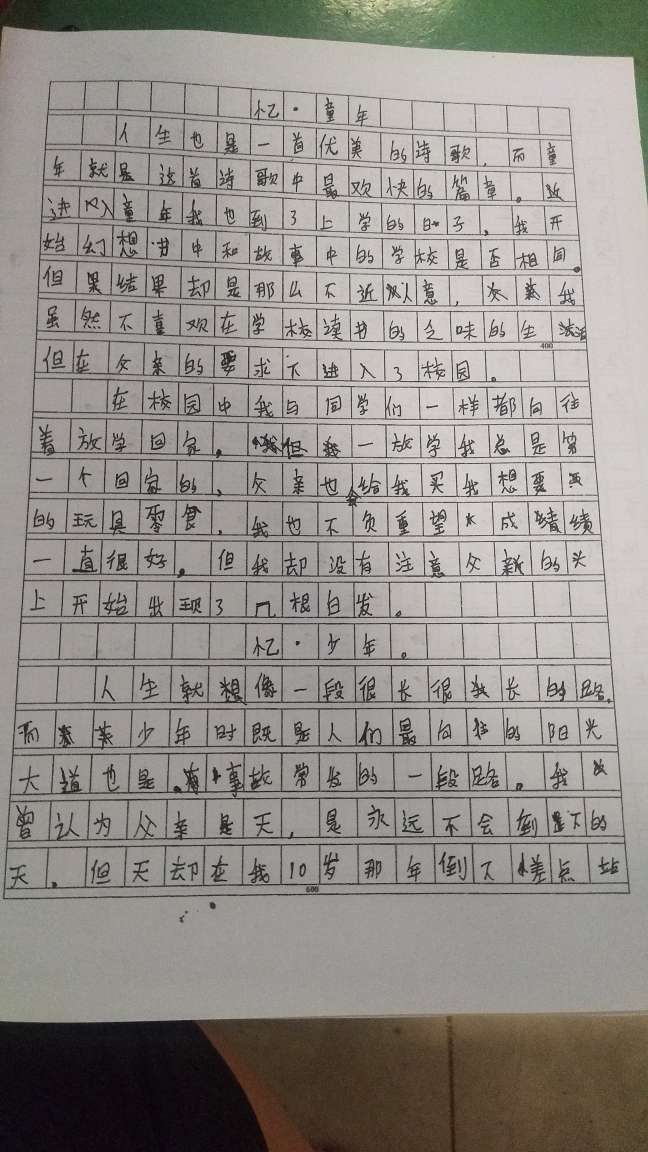 忆·童年
人生也是一首优美的诗歌，而童
年就是这首诗歌中最欢快的篇章。
进入童年我也到了上学的日子，我开
始幻想书中和故事中的学校是否相同。
但结果却是那么不近人意，我
虽然不喜欢在学校读书的乏味的生活
400
但在父亲的要求下进入了校园。
在校园中我与同学们一样都向往
着放学回家，但一放学我总是第
一个回家的，父亲也会给我买我想要
的玩具零食，我也不负重望成绩
一直很好，但我却没有注意父亲的头
上开始出现了几根白发。
忆·少年。
人生就像一段很长很长的路，
而少年时既是人们最向往的阳光
大道也是事故常发的一段路。我
曾认为父亲是天，是永远不会倒下的
天，但天却在我10岁那年倒下差点站
600